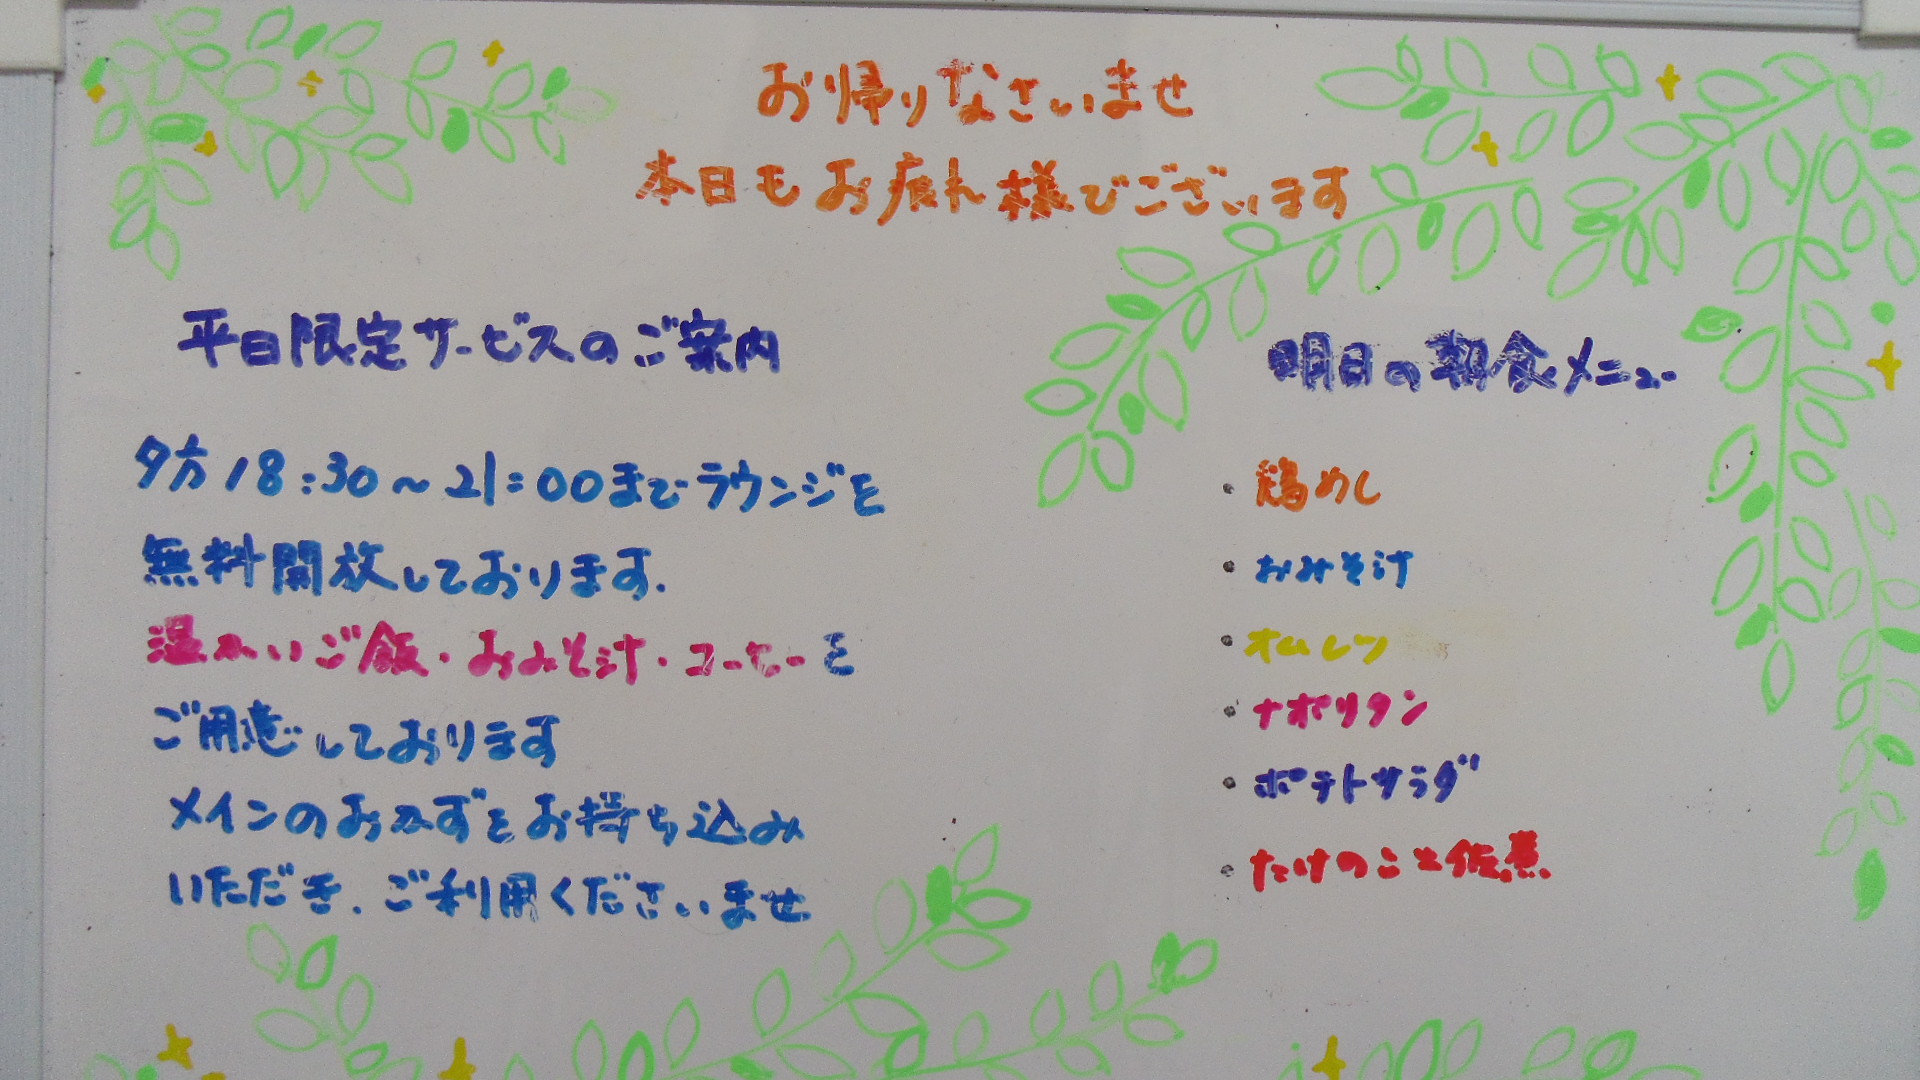 お帰りなさいませ
本日もお疲れ様でございます
平日限定サービスのご案内
夕方18:30～21:00までラウンジを
無料開放しております.
温かいご飯・おみそ汁・コーヒーを
ご用意しております
メインのおかずをお持ち込み
いただき、ご利用くださいませ
明日の朝食メニュー
・鶏めし
・おみそ汁
・オムレツ
・ナポリタン
・ポテトサラダ
・たけのこ土佐煮